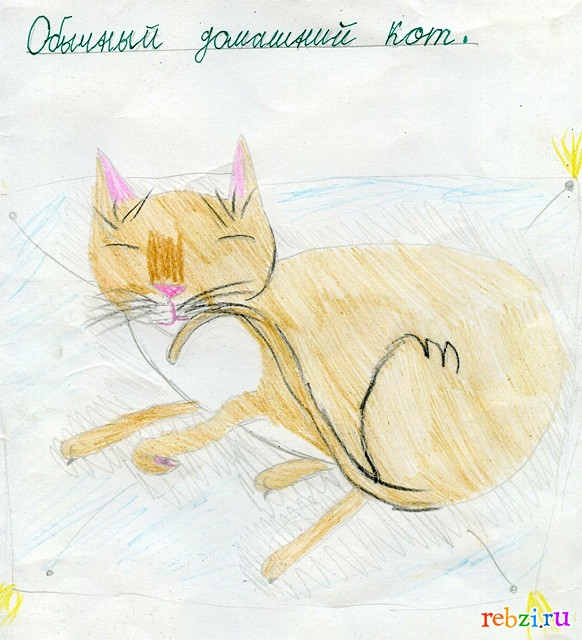 Обычный домашний кот.
rebzi.ru